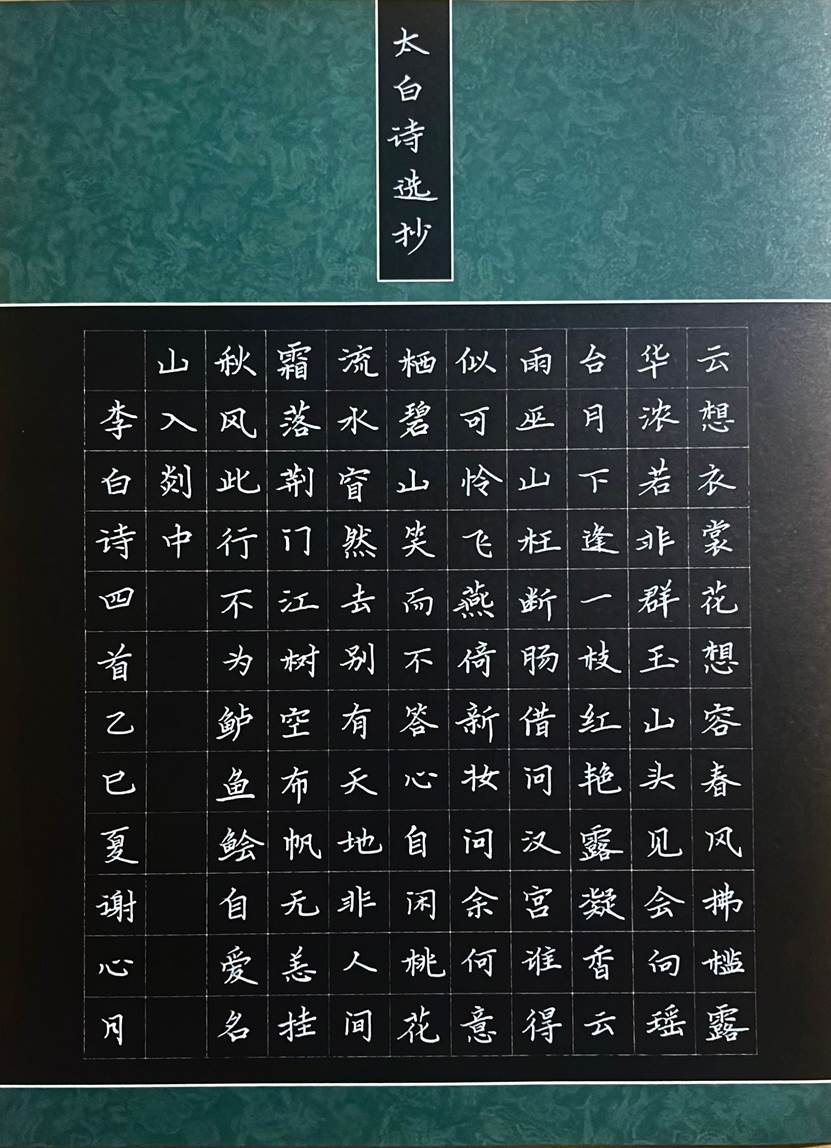 太白诗选抄
云想衣裳花想容春风拂槛露
华浓若非群玉山头见会向瑶
台月下逢一枝红艳露凝香云
雨巫山枉断肠借问汉宫谁得
似可怜飞燕倚新妆问余何意
栖碧山笑而不答心自闲桃花
流水窅然去别有天地非人间
霜落荆门江树空布帆无恙挂
秋风此行不为鲈鱼鲙自爱名
山入剡中
李白诗四首乙巳夏谢心月